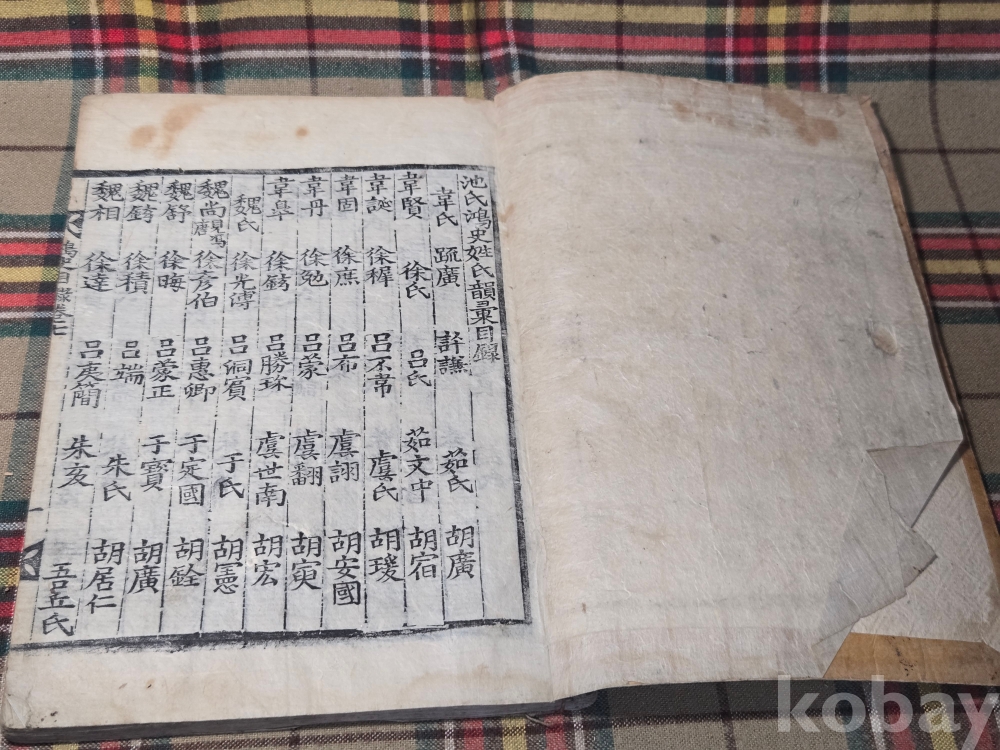 池氏鴻史姓氏韻彙目錄
韋氏 疏廣 茹氏 胡廣
韋賢 徐氏 呂氏 茹文中 胡宿
韋誕 徐穉 呂不韋 虞氏 胡瑗
韋固 徐庶 呂布 虞詡 胡安國
韋丹 徐勉 呂蒙 虞翻 胡寅
韋皐 徐錡 呂勝珎 虞世南 胡宏
魏氏 呂洞賓 于氏 胡憲
魏尚 徐彦伯 呂惠卿 于定國 胡銓
魏舒 徐晦 呂蒙正 于寶 胡廣
魏錡 徐積 呂端 朱氏 胡居仁
魏相 徐達 呂庚簡 朱亥 吾丘氏
一
kobay